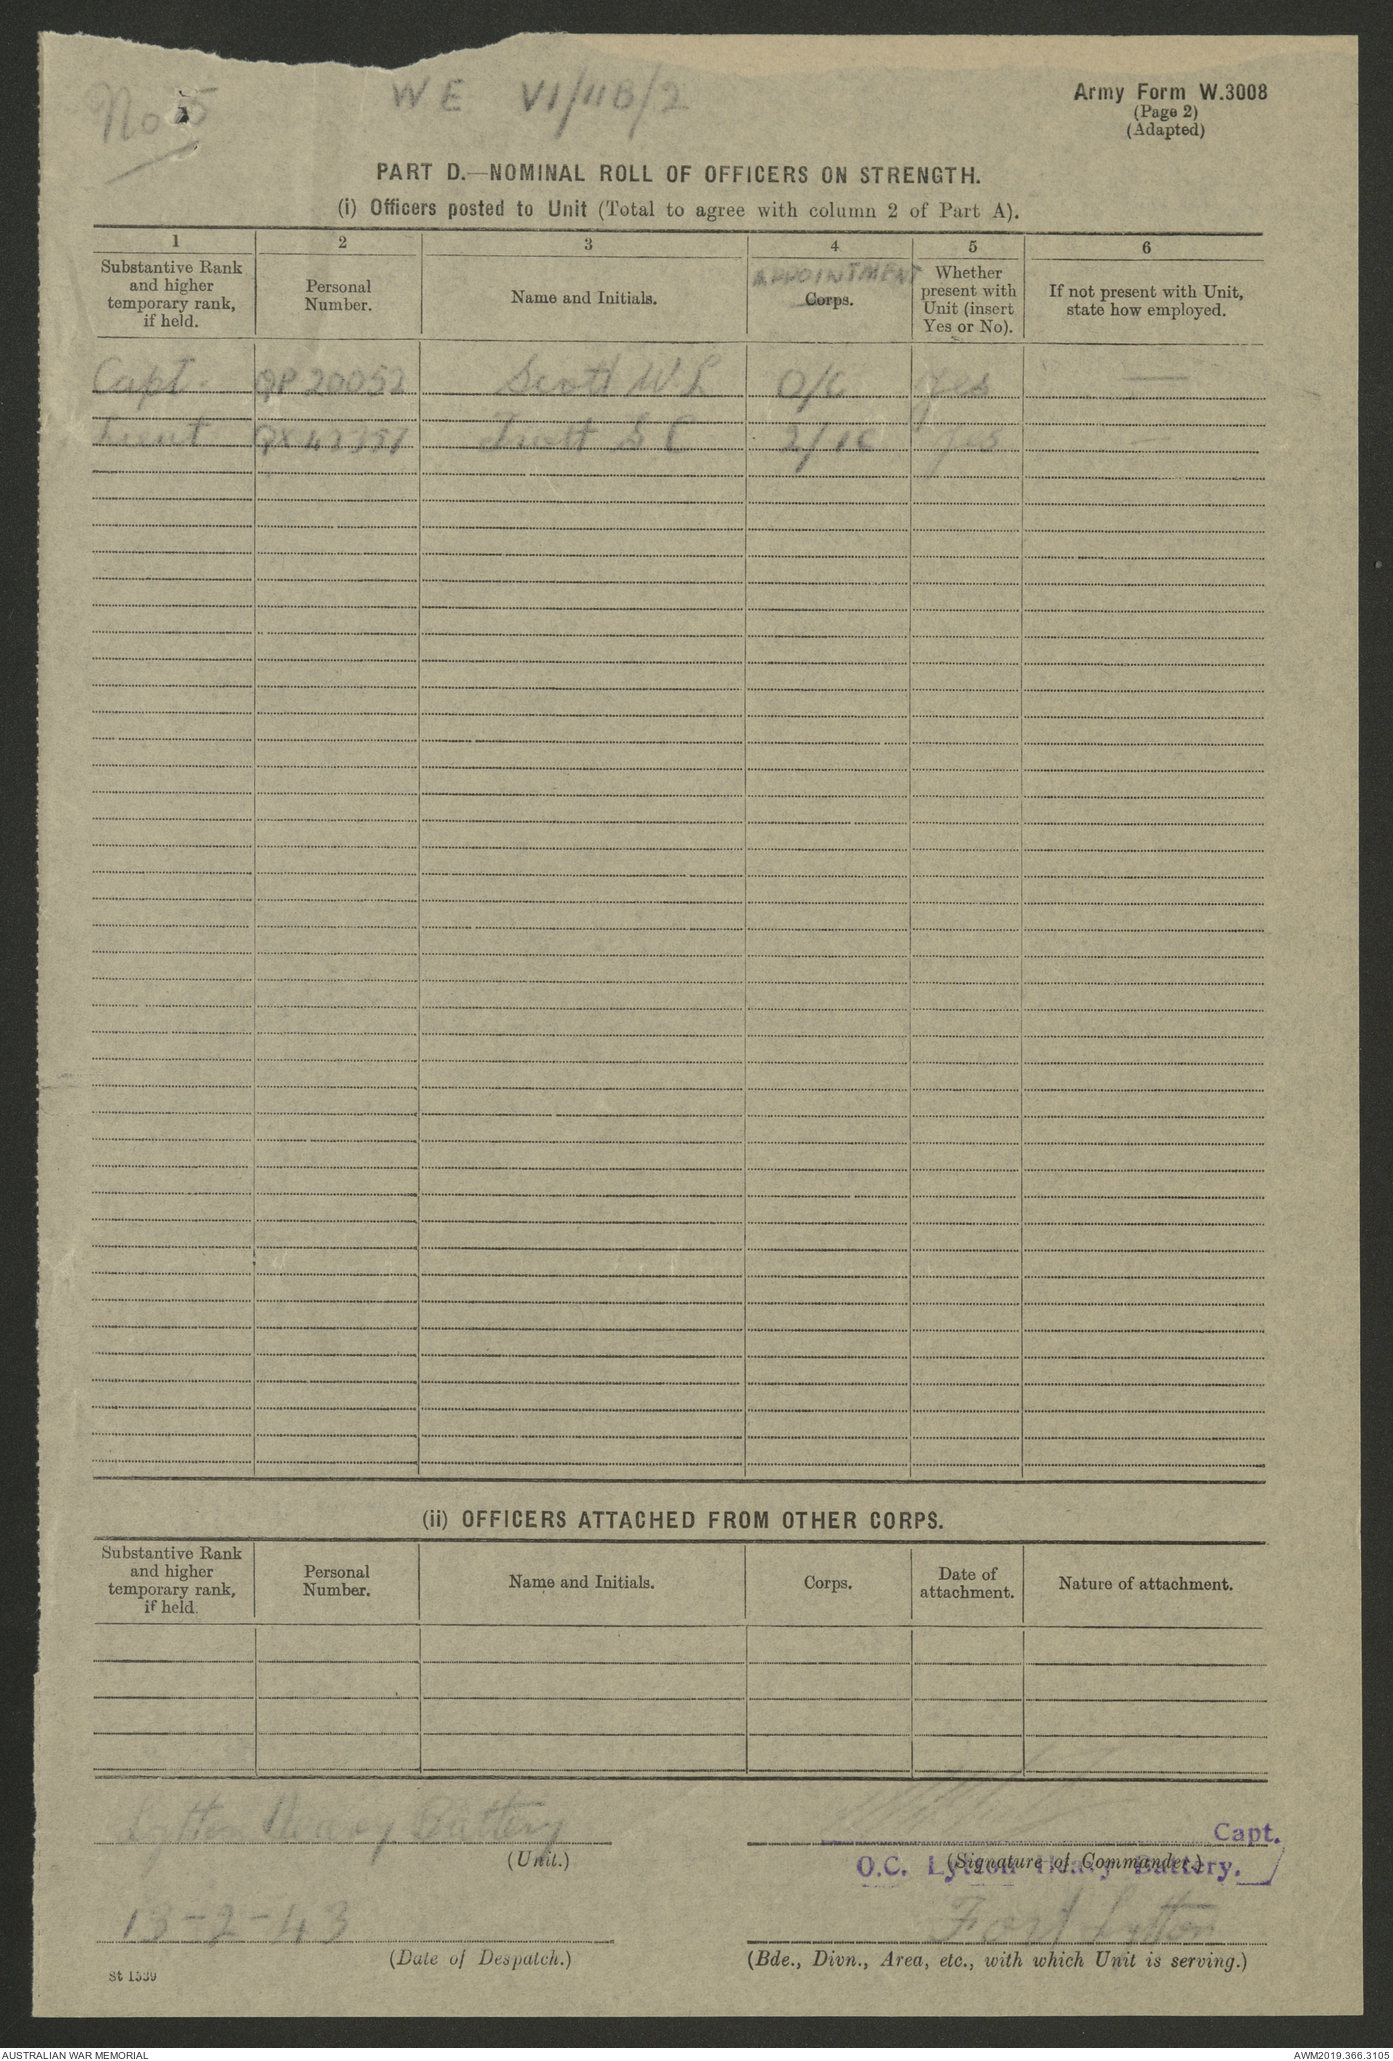 No 5
WE VI/11B/2
Army Form W.3008
(Page 2)
(Adapted)
PART D.—NOMINAL ROLL OF OFFICERS ON STRENGTH.
(i) Officers posted to Unit (Total to agree with column 2 of Part A).
1 2 3 4 5 6
Substantive Rank and higher temporary rank, if held.
Personal Number.
Name and Initials.
APPOINTMENT
Corps.
Whether present with Unit (insert Yes or No).
If not present with Unit, state how employed.
Capt. QP20052 Scott W.L O/C Yes —
Lieut S C 2/IC Yes
(ii) OFFICERS ATTACHED FROM OTHER CORPS.
Substantive Rank and higher temporary rank, if held.
Personal Number.
Name and Initials.
Corps.
Date of attachment.
Nature of attachment.
Lytton Heavy Battery
(Unit.)
Capt.
(Signature of Commander.)
O.C. Lytton Heavy Battery.
13-2-43
(Date of Despatch.)
Fort Lytton
(Bde., Divn., Area, etc., with which Unit is serving.)
St 1539
AUSTRALIAN WAR MEMORIAL
AWM2019.366.3105